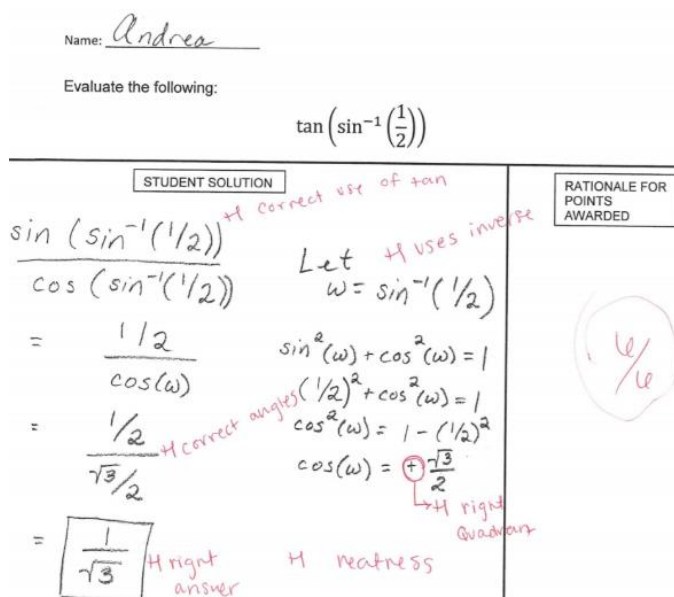 Name: Andrea
Evaluate the following:
tan(sin⁻¹(1/2))
STUDENT SOLUTION
RATIONALE FOR
POINTS
AWARDED
+1 correct use of tan
sin (sin⁻¹(1/2))
cos (sin⁻¹(1/2))
= 1/2
cos(ω)
= 1/2
√3/2
+1 correct angles
= 1
√3
+1 right
answer
Let
+1 uses inverse
ω = sin⁻¹(1/2)
sin²(ω) + cos²(ω) = 1
(1/2)² + cos²(ω) = 1
cos²(ω) = 1 - (1/2)²
cos(ω) = + √3/2
+1 right
Quadran
+1 neatness
6/6